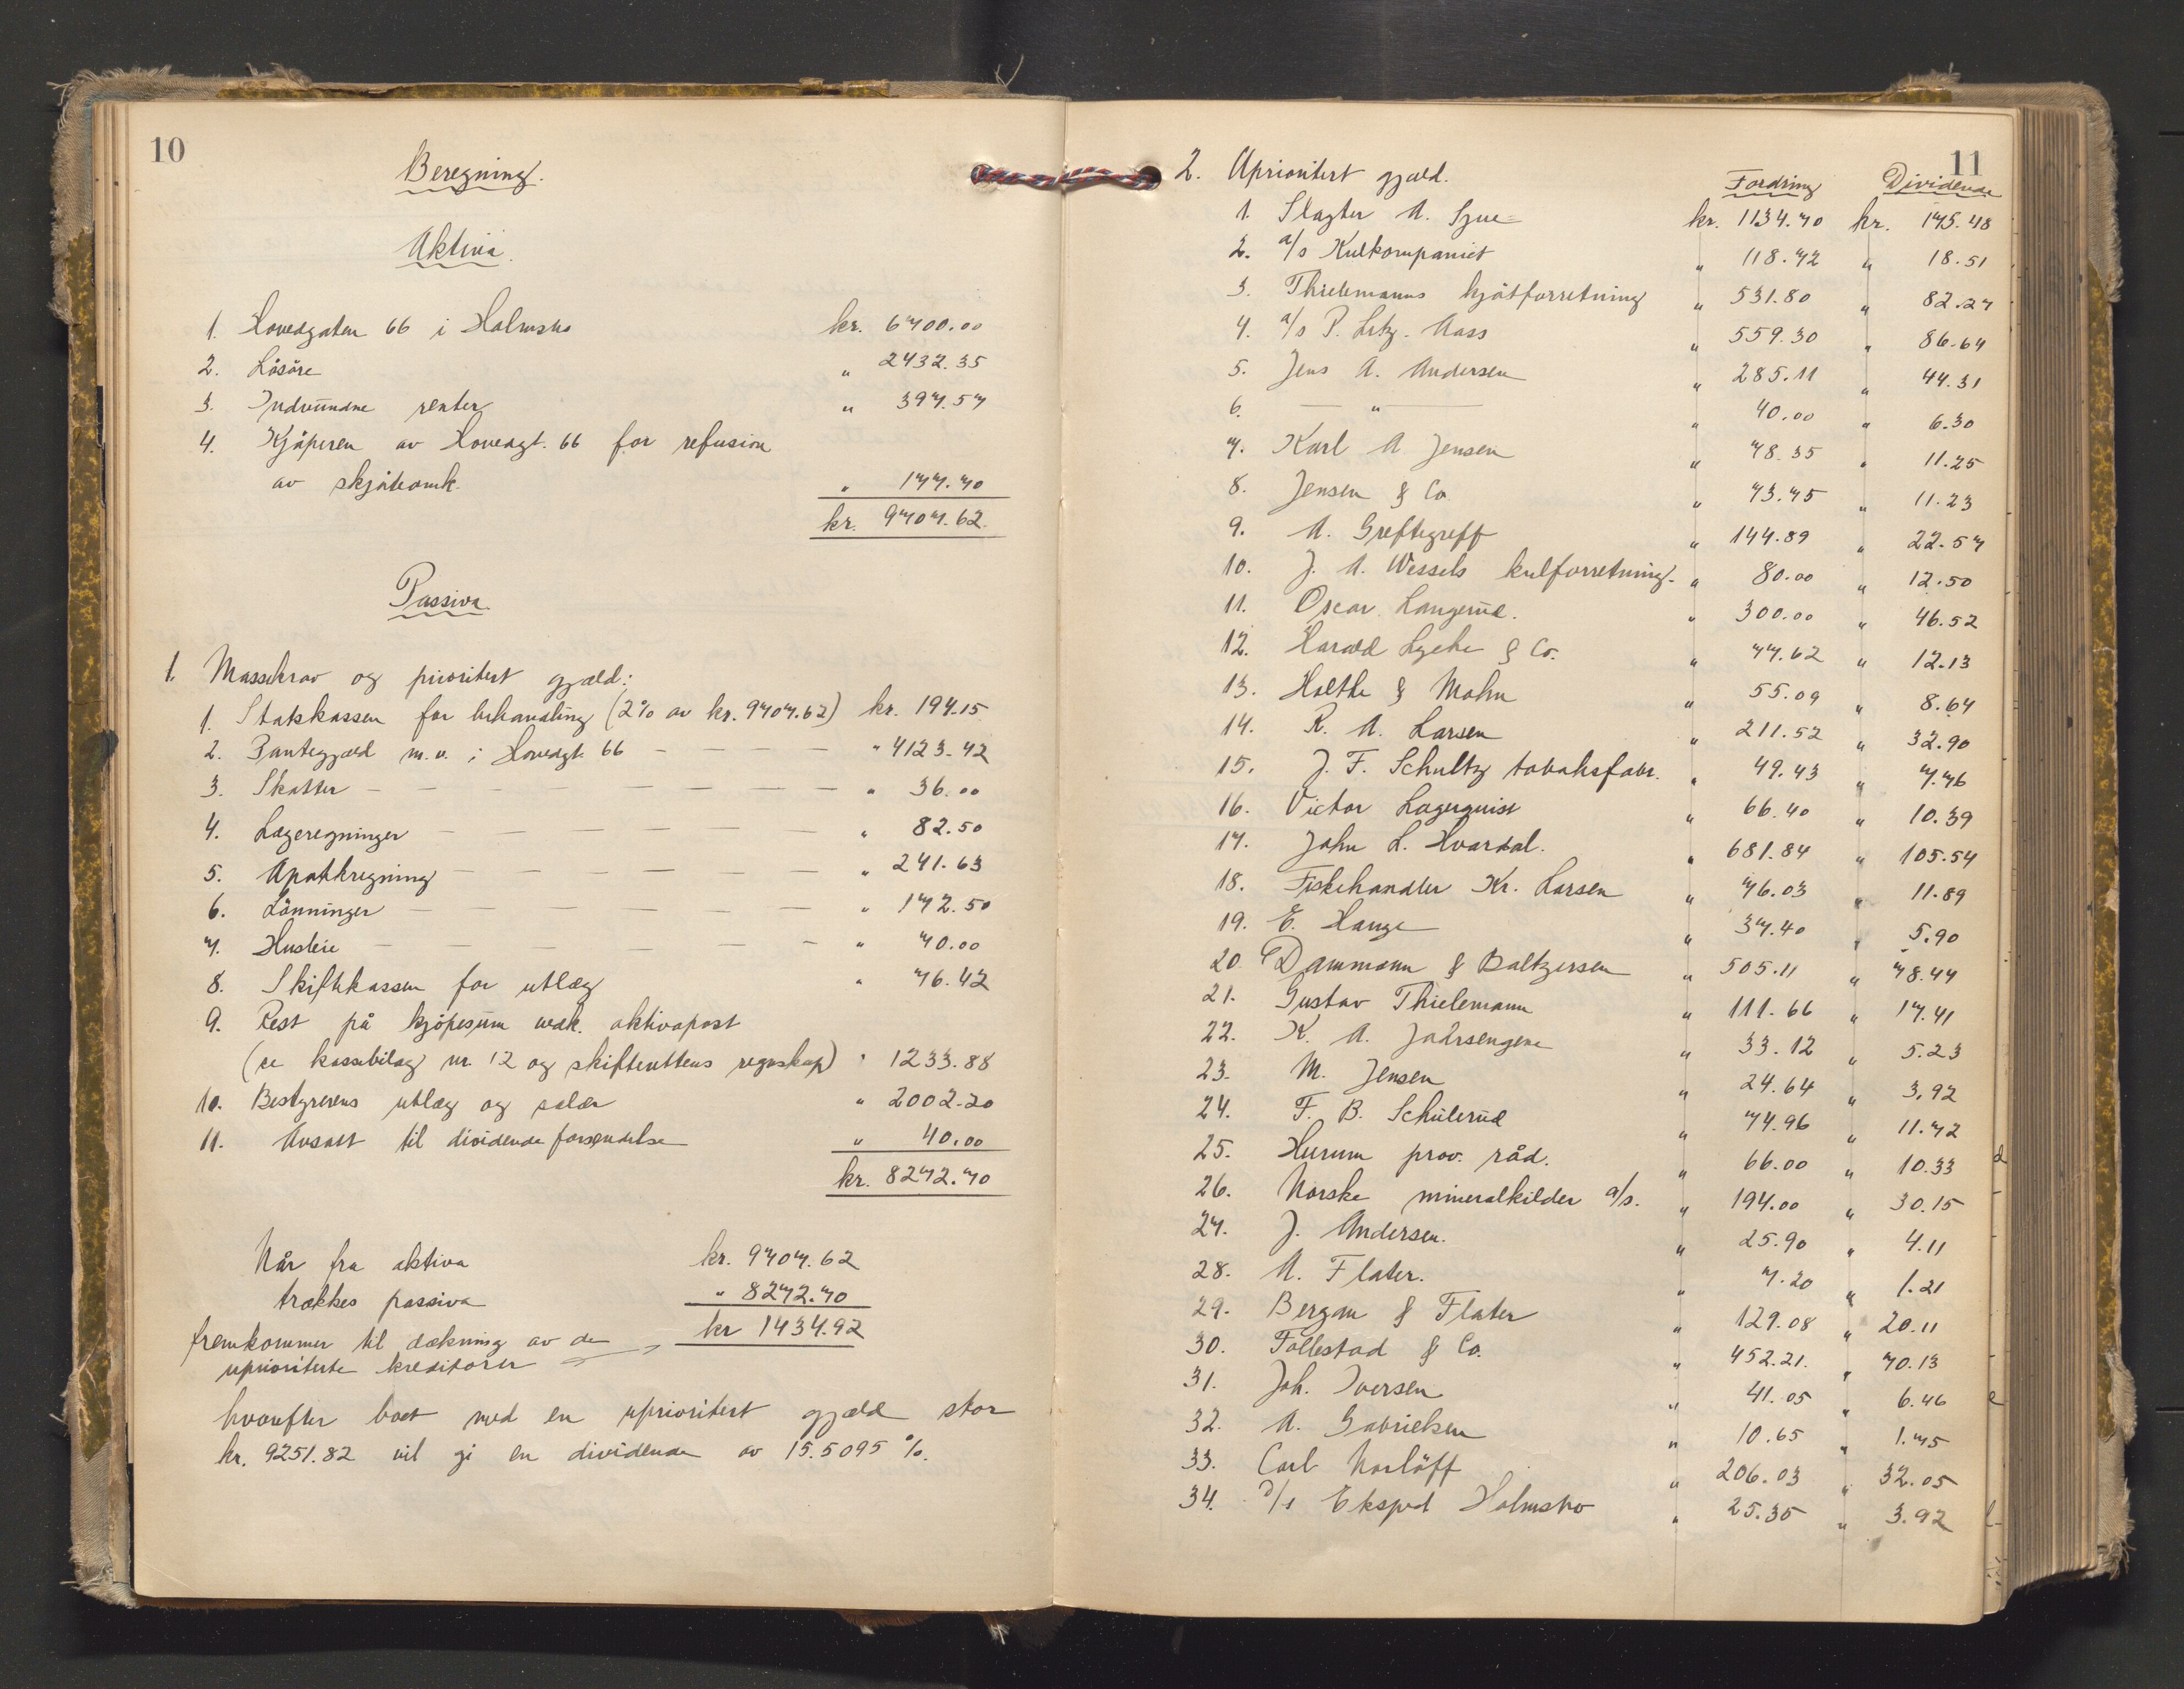 10
Beregning.
Aktiva.
1. Hovedgaten 66 i Holmsbo kr. 6700.00
2. Løsøre " 2432.35
3. Indvundne renter " 397.57
4. Kjøperen av Hovedgt. 66 for refusion
av skjøteomk. " 177.70
kr. 9707.62.
Passiva.
1. Massekrav og prioritert gjæld:
1. Statskassen for behandling (2% av kr. 9707.62) kr. 194.15
2. Pantegjæld m.v. i Hovedgt. 66 — — — — " 4123.42
3. Skatter — — — — — — — — " 36.00
4. Lægeregninger — — — — — — " 82.50
5. Apothekregning — — — — — — " 241.63
6. Lønninger — — — — — — " 172.50
7. Husleie — — — — — — " 70.00
8. Skiftekassen for utlæg " 76.42
9. Rest på kjøpesum vedk. aktivapost
(se kassebilag nr. 12 og skifterettens regnskap) " 1233.88
10. Bestyrerens utlæg og salær " 2002.20
11. Avsatt til dividendeforsendelse " 40.00
kr. 8272.70
Når fra aktiva kr. 9707.62
trækkes passiva " 8272.70
fremkommer til dækning av de kr 1434.92
uprioriterte kreditorer
hvorefter boet med en uprioritert gjæld stor
kr. 9251.82 vil gi en dividende av 15.5095 %.
11
2. Uprioritert gjæld. Fordring Dividende
1. Slagter A. Sjue kr. 1134.70 kr. 175.48
2. a/s Kulkompaniet " 118.72 " 18.51
3. Thielemanns kjøtforretning " 531.80 " 82.27
4. a/s P. Ltz. Aass " 559.30 " 86.64
5. Jens A. Andersen " 285.11 " 44.31
6. — " — " 40.00 " 6.30
7. Karl A Jensen " 78.35 " 11.25
8. Jensen & Co " 73.75 " 11.23
9. A. Greftegreff " 144.89 " 22.57
10. J. A. Wessels kulforretning. " 80.00 " 12.50
11. Oscar Langerud. " 300.00 " 46.52
12. Harald Lyche & Co. " 77.62 " 12.13
13. Holthe & Mohn " 55.09 " 8.64
14. R. A. Larsen " 211.52 " 32.90
15. J. F. Schultz tobaksfabr. " 49.43 " 7.76
16. Victor Lagerquist " 66.40 " 10.39
17. John L. Hvardal. " 681.84 " 105.54
18. Fiskehandler Kr. Larsen " 76.03 " 11.89
19. E. Hauge " 37.40 " 5.90
20. Dammann & Baltzersen " 505.11 " 78.44
21. Gustav Thielemann " 111.66 " 17.41
22. K. A. " 33.12 " 5.23
23. M. Jensen " 24.64 " 3.92
24. F. B. Schülerud " 74.96 " 11.72
25. Hurum prov. råd. " 66.00 " 10.33
26. Norske mineralkilder a/s. " 194.00 " 30.15
27. J. Andersen. " 25.90 " 4.11
28. A. Flater. " 7.20 " 1.21
29. Bergan & Flater " 129.08 " 20.11
30. Follestad & Co. " 452.21. " 70.13
31. Joh. Iversen " 41.05 " 6.46
32. A. Gabrielsen " 10.65 " 1.75
33. Carl Norløff " 206.03 " 32.05
34. D/s Ekspd Holmsbo " 25.35 " 3.92